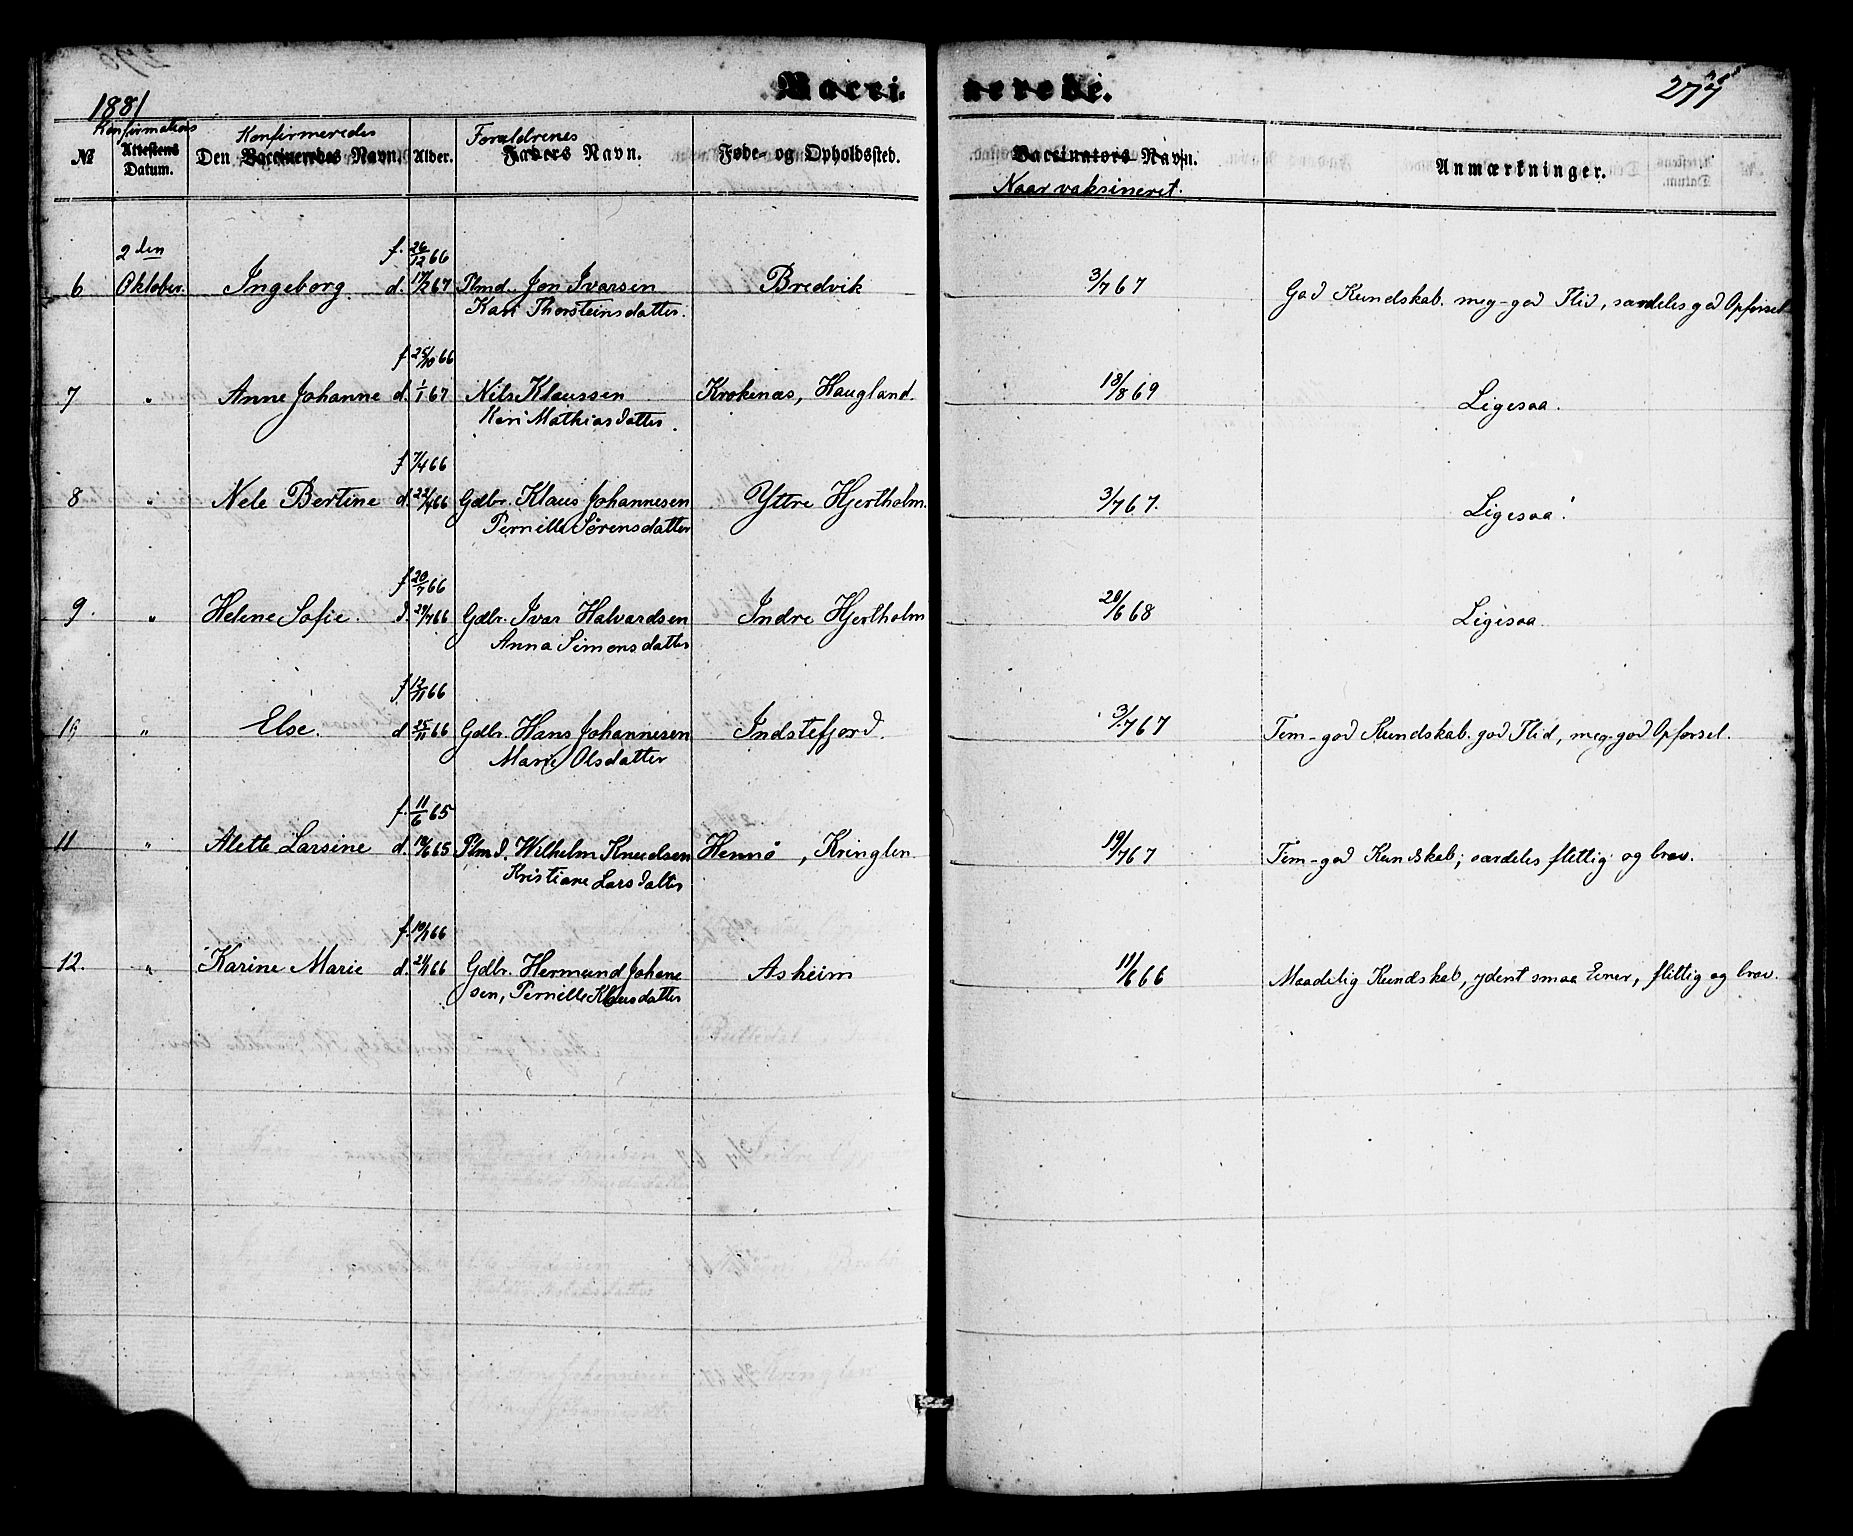 Vacci- nerede.
1881
277
Konfirmations Konfirmeredes Forældrenes
№ Attestens Datum. Den Vaccineredes Navn. Alder. Faders Navn. Føde- og Opholdssted. Vaccinators Navn. Anmærkninger.
Naar vaksineret.
2den f. 26/12 66
6 Oktober. Ingeborg. d. 17/2 67 Plmd. Jon Ivarsen Bredvik 3/7 67 God Kundskab. meg-god Flid, særdeles god Opførsel
Kari Thorsteinsdatter.
f 25/10 66
7 " Anne Johanne d. 1/1 67 Nils Klaussen Krokenæs, Haugland. 18/8 69 Ligesaa.
Kari Mathiasdatter.
f 7/4 66
8 " Nele Bertine d. 22/4 66 Gdbr. Klaus Johannesen Yttre Hjertholm. 3/7 67. Ligesaa!
Pernille Sørensdatter
f 20/7 66
9. " Helene Sofie. d. 29/7 66 Gdbr. Ivar Halvardsen Indre Hjertholm 20/6 68 Ligesaa.
Anna Simonsdatter
f 12/11 66
10 " Else. d 25/11 66 Gdbr. Hans Johannesen Indstefjord. 3/7 67 Tem-god Kundskab. god Flid, meg-god Opførsel.
Marie Olsdatter
f. 11/6 65
11 " Alette Larsine d. 19/6 65 Plmd. Wilhelm Knudsen Hennø, Kringlen. 19/7 67 Tem-god Kundskab; særdeles flittig og brav.
Kristiane Larsdatter
f. 10/1 66
12. " Karine Marie d. 21/1 66 Gdbr. Hermund Johane Asheim 11/6 66 Maadelig Kundskab, ydent smaa Evner, flittig og brav.
sen, Pernille Klausdatter